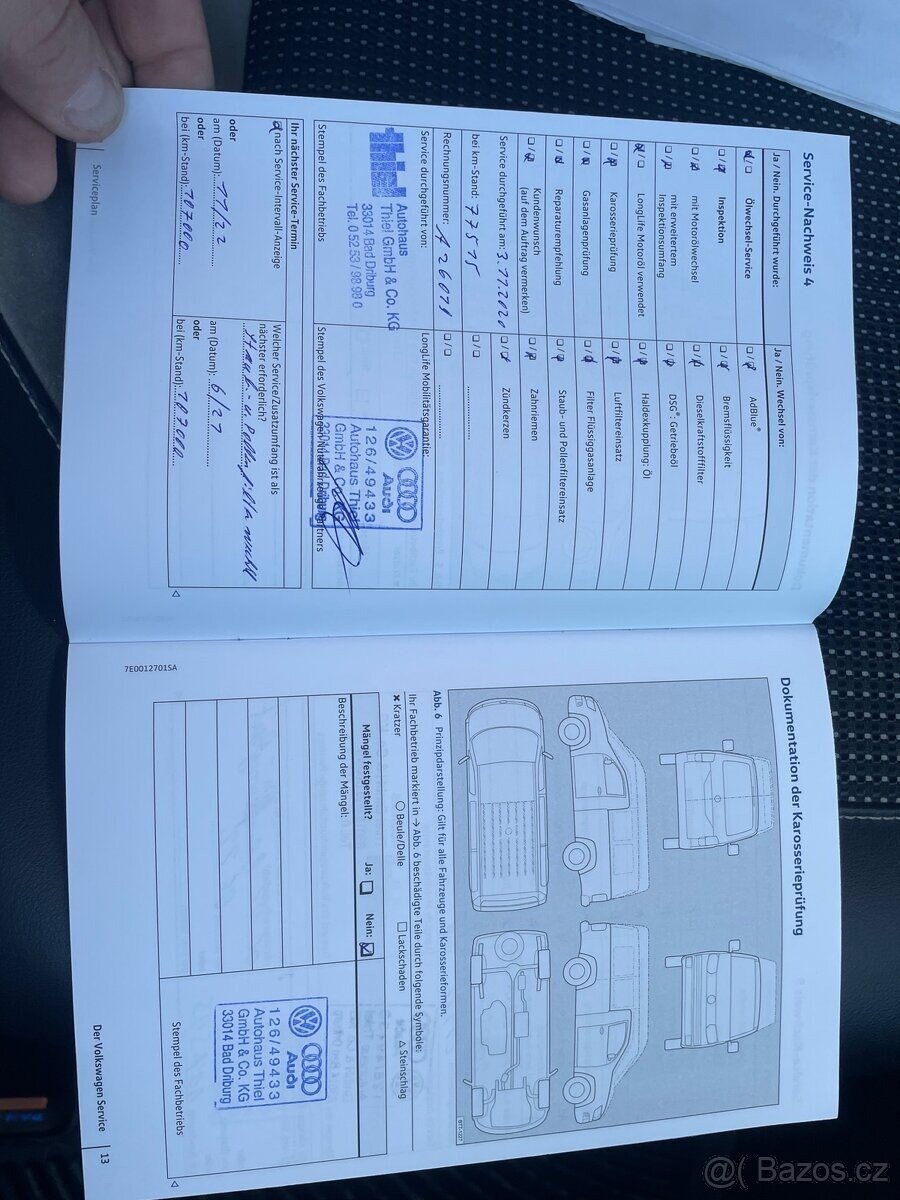 Service-Nachweis 4
Ja / Nein. Durchgeführt wurde:
Ja / Nein. Wechsel von:
Ölwechsel-Service
AdBlue®
Inspektion
Bremsflüssigkeit
mit Motorölwechsel
Dieselkraftstofffilter
mit erweitertem
Inspektionsumfang
DSG® Getriebeöl
LongLife Motoröl verwendet
Haldexkupplung: Öl
Karosserieprüfung
Luftfiltereinsatz
Gasanlagenprüfung
Filter Flüssiggasanlage
Reparaturempfehlung
Staub- und Pollenfiltereinsatz
Kundenwunsch
(auf dem Auftrag vermerken)
Zahnriemen
Service durchgeführt am: 3.11.2020
Zündkerzen
bei km-Stand: 77575
Rechnungsnummer:
Service durchgeführt von:
LongLife Mobilitätsgarantie:
Thiel
Autohaus
Thiel GmbH & Co. KG
33014 Bad Driburg
Tel. 0 52 53 / 98 98 0
Audi
126/49433
Autohaus Thiel
GmbH & Co. KG
33014 Bad Driburg
Stempel des Fachbetriebs
Stempel des Volkswagen Nutzfahrzeuge Partners
Ihr nächster Service-Termin
nach Service-Intervall-Anzeige
oder
am (Datum): 11/22
oder
bei (km-Stand): 107000
Welcher Service/Zusatzumfang ist als
nächster erforderlich?
am (Datum): 6/21
oder
bei (km-Stand): 107000
Serviceplan
7E0012701SA
Dokumentation der Karosserieprüfung
Abb. 6 Prinzipdarstellung: Gilt für alle Fahrzeuge und Karosserieformen.
Ihr Fachbetrieb markiert in → Abb. 6 beschädigte Teile durch folgende Symbole:
× Kratzer
○ Beule/Delle
□ Lackschaden
△ Steinschlag
Mängel festgestellt?
Ja:
Nein:
Beschreibung der Mängel:
Audi
126/49433
Autohaus Thiel
GmbH & Co. KG
33014 Bad Driburg
Stempel des Fachbetriebs
Der Volkswagen Service
13
@( Bazos.cz